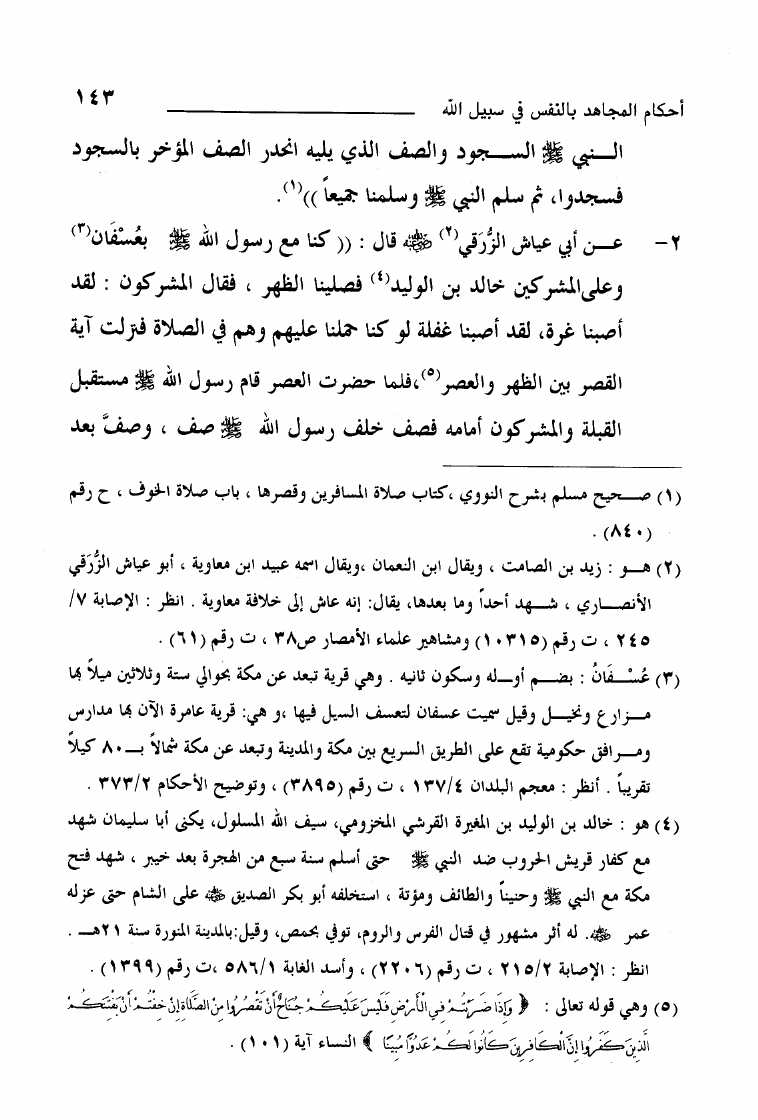 أحكام المجاهد بالنفس في سبيل الله ١٤٣
النبي ﷺ السجود والصف الذي يليه انحدر الصف المؤخر بالسجود
فسجدوا، ثم سلم النبي ﷺ وسلمنا جميعاً ))(١).
٢- عن أبي عياش الزُّرَقي(٢) ﷺ قال : (( كنا مع رسول الله ﷺ بعُسْفَان(٣)
وعلى المشركين خالد بن الوليد(٤) فصلينا الظهر ، فقال المشركون : لقد
أصبنا غرة، لقد أصبنا غفلة لو كنا حملنا عليهم وهم في الصلاة فنزلت آية
القصر بين الظهر والعصر(٥)،فلما حضرت العصر قام رسول الله ﷺ مستقبل
القبلة والمشركون أمامه فصف خلف رسول الله ﷺ صف ، وصفَّ بعد
(١) صحيح مسلم بشرح النووي ،كتاب صلاة المسافرين وقصرها ، باب صلاة الخوف ، ح رقم
(٨٤٠) .
(٢) هو : زيد بن الصامت ، ويقال ابن النعمان ،ويقال اسمه عبيد ابن معاوية ، أبو عياش الزُّرَقي
الأنصاري ، شهد أحداً وما بعدها، يقال: إنه عاش إلى خلافة معاوية . انظر : الإصابة ٧/
٢٤٥ ، ت رقم (١٠٣١٥) ومشاهير علماء الأمصار ص٣٨ ، ت رقم (٦١) .
(٣) عُسْفَانُ : بضم أوله وسكون ثانيه . وهي قرية تبعد عن مكة بحوالي ستة وثلاثين ميلاً بها
مزارع ونخيل وقيل سميت عسفان لتعسف السيل فيها ،و هي: قرية عامرة الآن بها مدارس
ومرافق حكومية تقع على الطريق السريع بين مكة والمدينة وتبعد عن مكة شمالاً بـ٨٠ كيلاً
تقريباً . أنظر : معجم البلدان ١٣٧/٤ ، ت رقم (٣٨٩٥) ، وتوضيح الأحكام ٣٧٣/٢ .
(٤) هو : خالد بن الوليد بن المغيرة القرشي المخزومي، سيف الله المسلول، يكنى أبا سليمان شهد
مع كفار قريش الحروب ضد النبي ﷺ حتى أسلم سنة سبع من الهجرة بعد خيبر ، شهد فتح
مكة مع النبي ﷺ وحنيناً والطائف ومؤتة ، استخلفه أبو بكر الصديق رضي الله عنه على الشام حتى عزله
عمر رضي الله عنه. له أثر مشهور في قتال الفرس والروم، توفي بحمص، وقيل:بالمدينة المنورة سنة ٢١هـ .
انظر : الإصابة ٢١٥/٢ ، ت رقم (٢٢٠٦) ، وأسد الغابة ٥٨٦/١ ،ت رقم (١٣٩٩) .
(٥) وهي قوله تعالى : ﴿ وَإِذَا ضَرَبْتُمْ فِي الْأَرْضِ فَلَيْسَ عَلَيْكُمْ جُنَاحٌ أَنْ تَقْصُرُوا مِنَ الصَّلَاةِ إِنْ خِفْتُمْ أَنْ يَفْتِنَكُمُ
الَّذِينَ كَفَرُوا إِنَّ الْكَافِرِينَ كَانُوا لَكُمْ عَدُوًّا مُبِينًا ﴾ النساء آية (١٠١) .